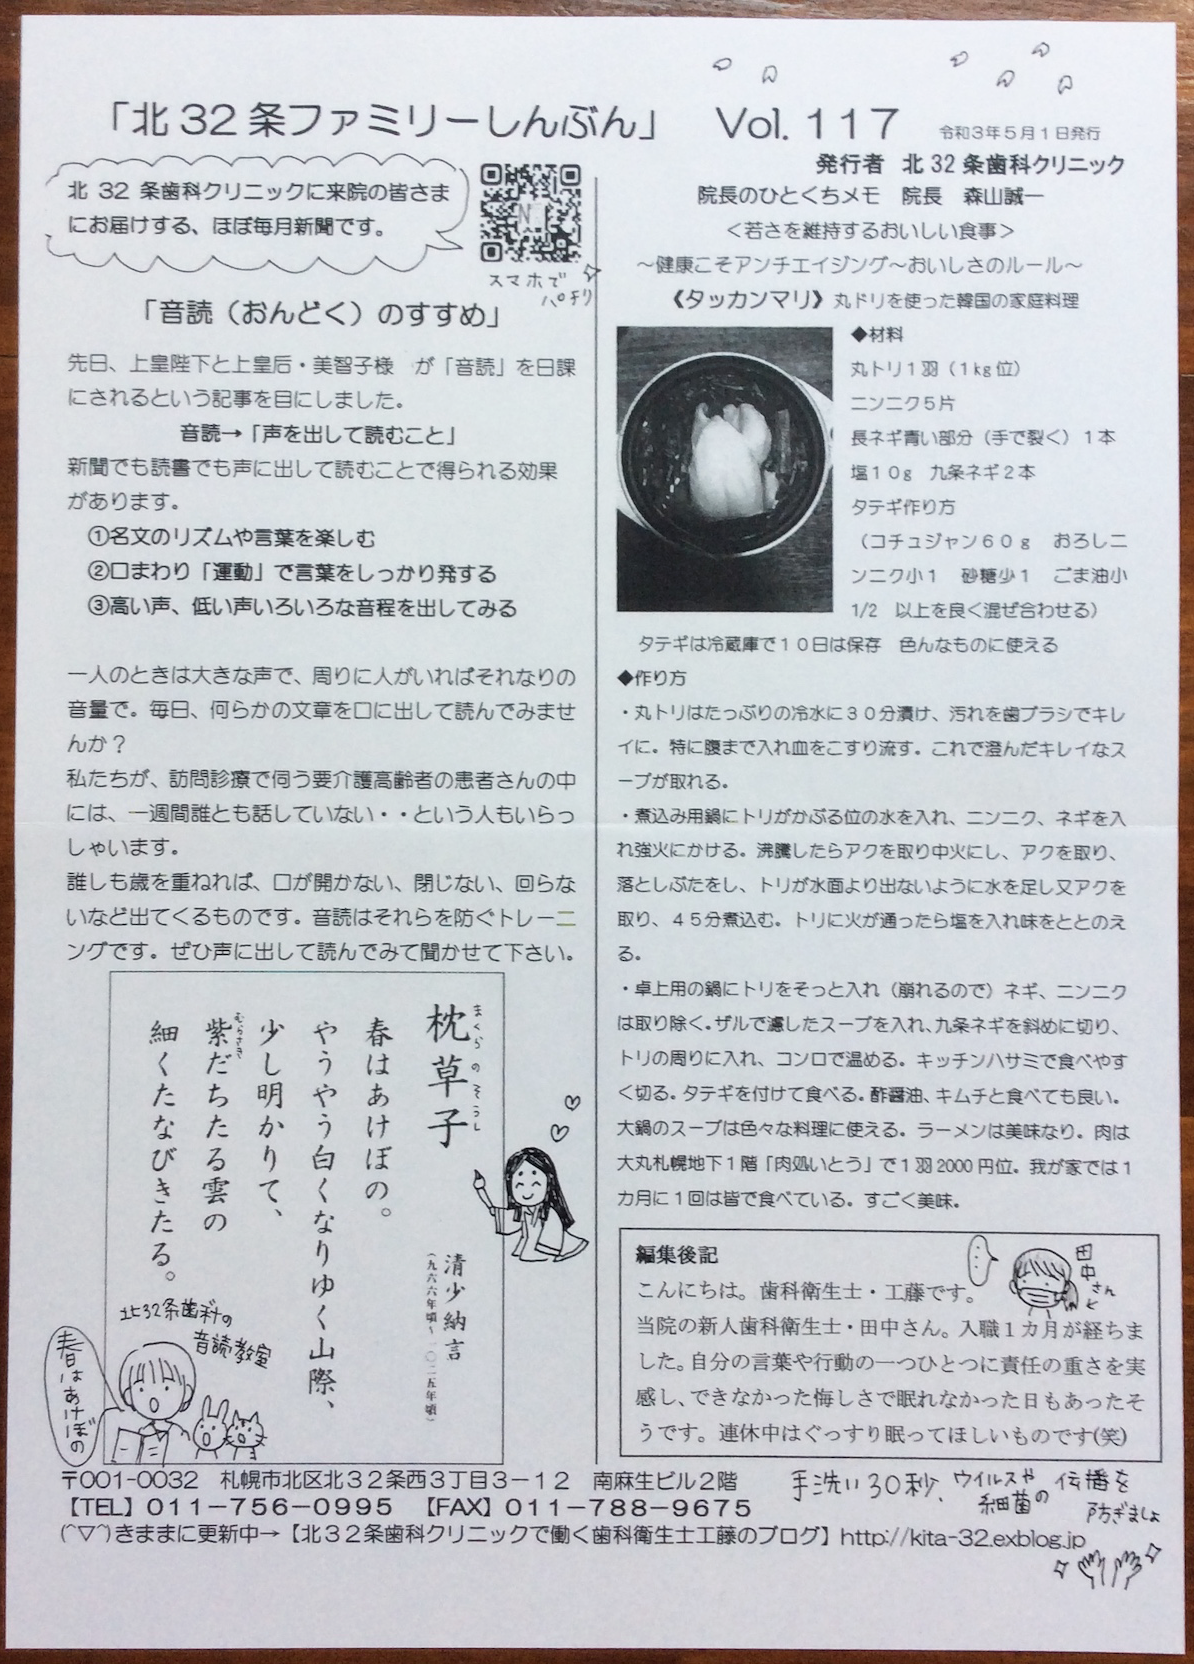 「北32条ファミリーしんぶん」 Vol.117 令和3年5月1日発行
北32条歯科クリニックに来院の皆さま
にお届けする、ほぼ毎月新聞です。
スマホで
パチリ
「音読（おんどく）のすすめ」
先日、上皇陛下と上皇后・美智子様　が「音読」を日課
にされるという記事を目にしました。
音読→「声を出して読むこと」
新聞でも読書でも声に出して読むことで得られる効果
があります。
①名文のリズムや言葉を楽しむ
②口まわり「運動」で言葉をしっかり発する
③高い声、低い声いろいろな音程を出してみる
一人のときは大きな声で、周りに人がいればそれなりの
音量で。毎日、何らかの文章を口に出して読んでみませ
んか？
私たちが、訪問診療で伺う要介護高齢者の患者さんの中
には、一週間誰とも話していない・・という人もいらっ
しゃいます。
誰しも歳を重ねれば、口が開かない、閉じない、回らな
いなど出てくるものです。音読はそれらを防ぐトレーニ
ングです。ぜひ声に出して読んでみて聞かせて下さい。
枕草子
まくらのそうし
清少納言
（九六六年頃～一〇二五年頃）
春はあけぼの。
やうやう白くなりゆく山際、
少し明かりて、
紫だちたる雲の
むらさき
細くたなびきたる。
北32条歯科の
音読教室
春はあけぼの
発行者　北32条歯科クリニック
院長のひとくちメモ　院長　森山誠一
＜若さを維持するおいしい食事＞
～健康こそアンチエイジング～おいしさのルール～
《タッカンマリ》丸ドリを使った韓国の家庭料理
◆材料
丸トリ1羽（1kg位）
ニンニク5片
長ネギ青い部分（手で裂く）1本
塩10g　九条ネギ2本
タテギ作り方
（コチュジャン60g　おろしニ
ンニク小1　砂糖少1　ごま油小
1/2　以上を良く混ぜ合わせる）
タテギは冷蔵庫で10日は保存　色んなものに使える
◆作り方
・丸トリはたっぷりの冷水に30分漬け、汚れを歯ブラシでキレ
イに。特に腹まで入れ血をこすり流す。これで澄んだキレイなス
ープが取れる。
・煮込み用鍋にトリがかぶる位の水を入れ、ニンニク、ネギを入
れ強火にかける。沸騰したらアクを取り中火にし、アクを取り、
落としぶたをし、トリが水面より出ないように水を足し又アクを
取り、45分煮込む。トリに火が通ったら塩を入れ味をととのえ
る。
・卓上用の鍋にトリをそっと入れ（崩れるので）ネギ、ニンニク
は取り除く。ザルで濾したスープを入れ、九条ネギを斜めに切り、
トリの周りに入れ、コンロで温める。キッチンハサミで食べやす
く切る。タテギを付けて食べる。酢醤油、キムチと食べても良い。
大鍋のスープは色々な料理に使える。ラーメンは美味なり。肉は
大丸札幌地下1階「肉処いとう」で1羽2000円位。我が家では1
カ月に1回は皆で食べている。すごく美味。
編集後記
田中さん
こんにちは。歯科衛生士・工藤です。
当院の新人歯科衛生士・田中さん。入職1カ月が経ちま
した。自分の言葉や行動の一つひとつに責任の重さを実
感し、できなかった悔しさで眠れなかった日もあったそ
うです。連休中はぐっすり眠ってほしいものです(笑)
〒001-0032　札幌市北区北32条西3丁目3-12　南麻生ビル2階
【TEL】011-756-0995　【FAX】011-788-9675
(^▽^)きままに更新中→【北32条歯科クリニックで働く歯科衛生士工藤のブログ】http://kita-32.exblog.jp
手洗い30秒、ウイルスや細菌の伝播を
防ぎましょ